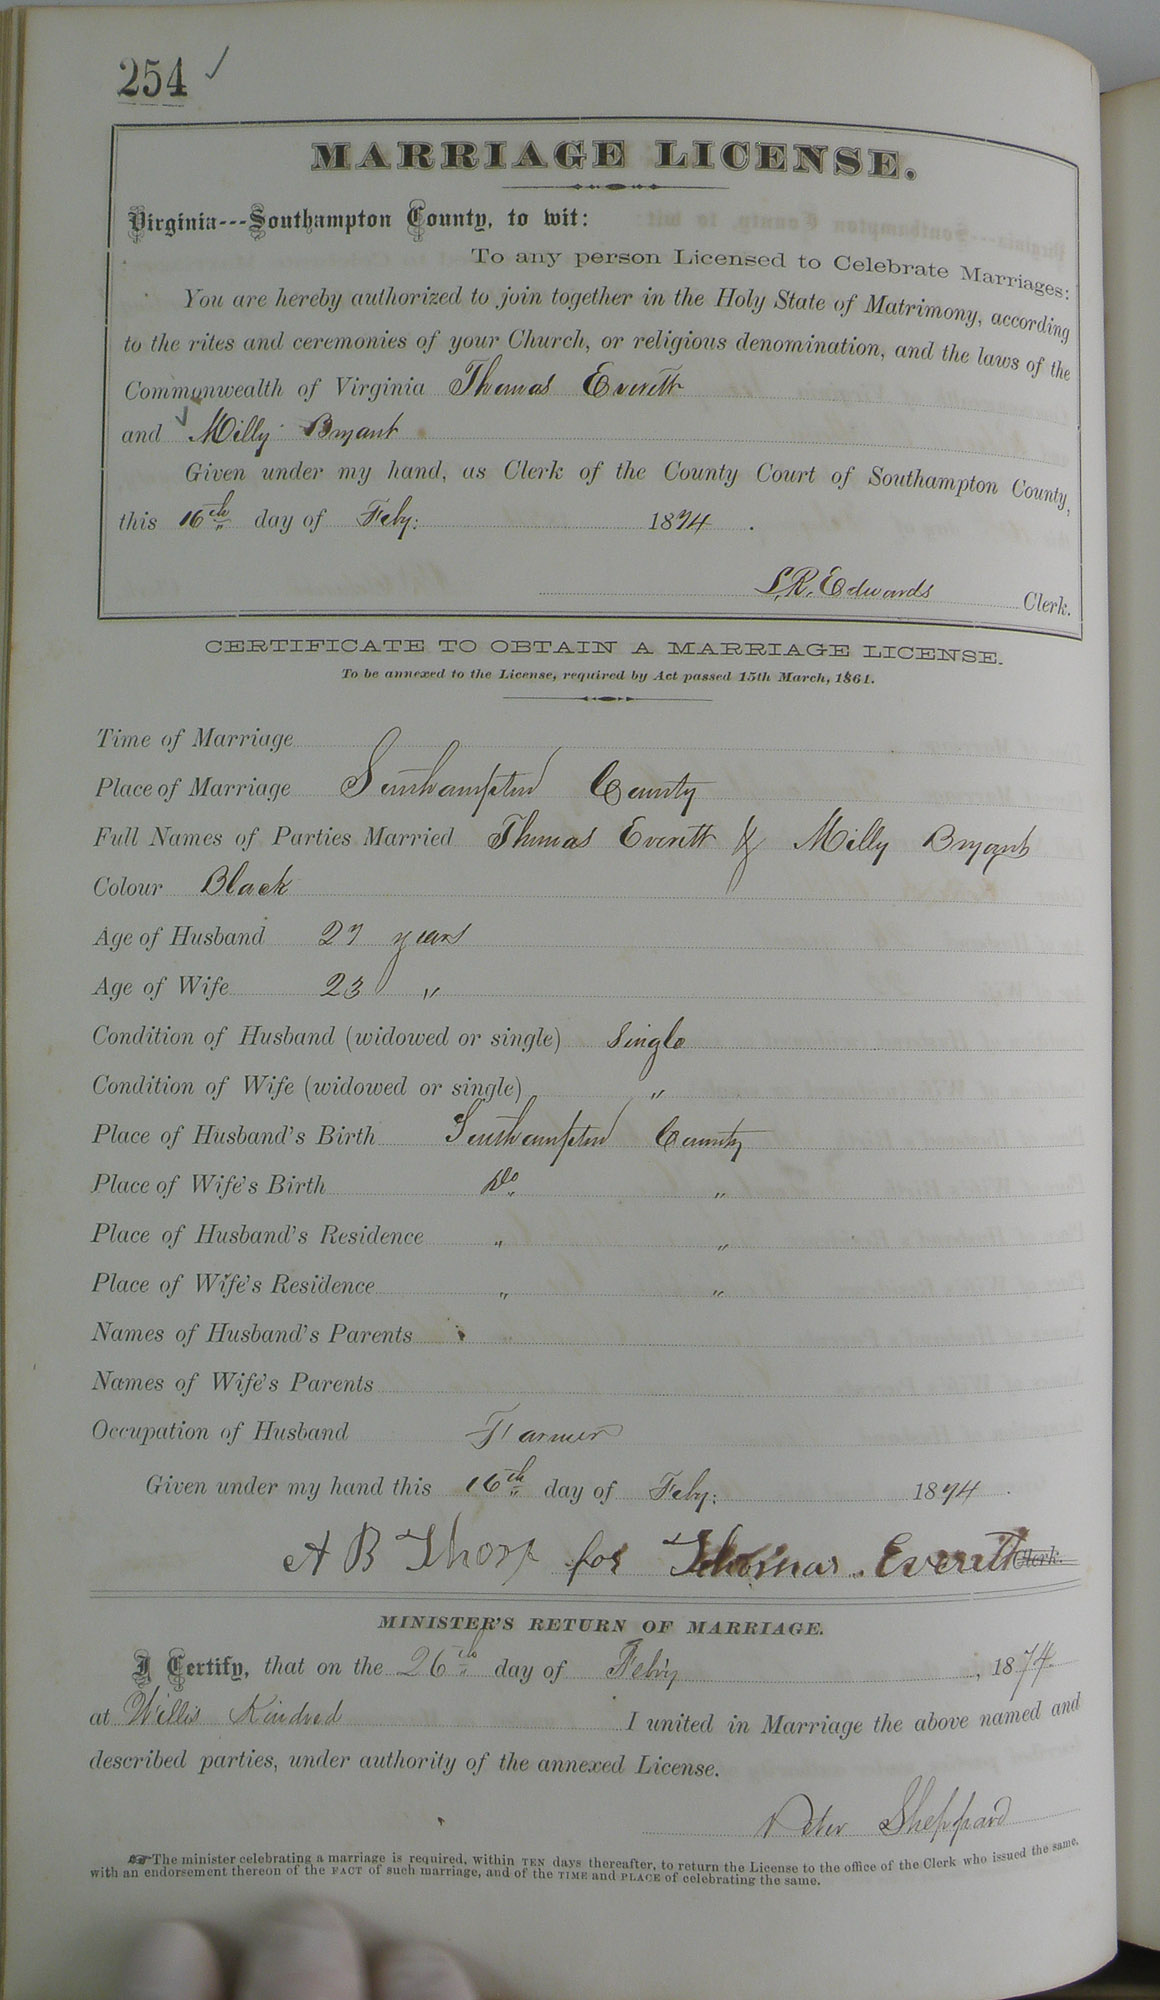 254 ✓
MARRIAGE LICENSE.
Virginia---Southampton County, to wit:
To any person Licensed to Celebrate Marriages:
You are hereby authorized to join together in the Holy State of Matrimony, according
to the rites and ceremonies of your Church, or religious denomination, and the laws of the
Commonwealth of Virginia Thomas Everett
and Milly Bryant
Given under my hand, as Clerk of the County Court of Southampton County,
this 16th day of Feby: 1874.
L.R. Edwards Clerk.
CERTIFICATE TO OBTAIN A MARRIAGE LICENSE.
To be annexed to the License, required by Act passed 15th March, 1861.
Time of Marriage
Place of Marriage Southampton County
Full Names of Parties Married Thomas Everett & Milly Bryant
Colour Black
Age of Husband 27 years
Age of Wife 23 "
Condition of Husband (widowed or single) Single
Condition of Wife (widowed or single) "
Place of Husband's Birth Southampton County
Place of Wife's Birth Do "
Place of Husband's Residence " "
Place of Wife's Residence " "
Names of Husband's Parents
Names of Wife's Parents
Occupation of Husband Farmer
Given under my hand this 16th day of Feby: 1874.
A B Thorp for Thomas Everett Clerk.
MINISTER'S RETURN OF MARRIAGE.
I Certify, that on the 26th day of Feb'y, 1874
at Willis Kindred I united in Marriage the above named and
described parties, under authority of the annexed License.
Peter Sheppard
☞The minister celebrating a marriage is required, within TEN days thereafter, to return the License to the office of the Clerk who issued the same,
with an endorsement thereon of the FACT of such marriage, and of the TIME and PLACE of celebrating the same.